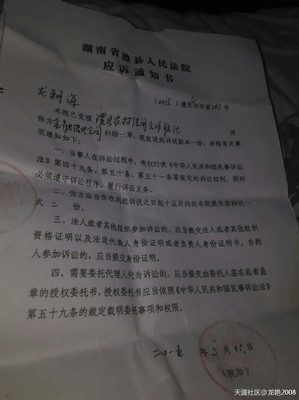 湖南省澧县人民法院
应诉通知书
本院已受理
纠纷一案,现发送起诉状副本一份,并将有关事
项通知如下:
一、当事人在诉讼过程中,有权行使《中华人民共和国民事诉讼
法》第四十九条、第五十条、第五十一条等规定的诉讼权利,同时
必须遵守诉讼秩序,履行诉讼义务。
二、你方应当在收到起诉状之日起十五日内向本院提交答辩状
式 二 份。
三、法人或者其他组织参加诉讼的,应当提交法人或者其他组织
资格证明以及法定代表人身份证明或者负责人身份证明书。自然
人参加诉讼的,应当提交身份证明。
四、需要委托代理人代为诉讼的,应当提交由委托人签名或者盖
章的授权委托书,授权委托书应当依照《中华人民共和国民事诉讼法》
第五十九条的规定载明委托事项和权限。
二〇一五 年 月 日
(院印)
天涯社区@龙艳2008